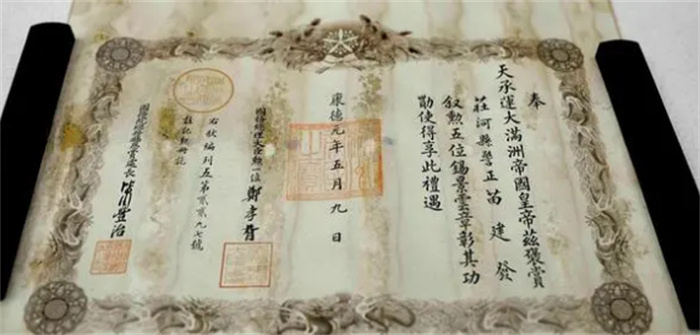 奉
天承運大滿洲帝國皇帝茲褒賞
莊河縣警正苗建發
敘勲五位錫景雲章彰其功
勛使得享此禮遇
康德元年五月九日
國務總理大臣勲一位鄭孝胥
右狀編列五第貳貳九七號
註記勲冊訖